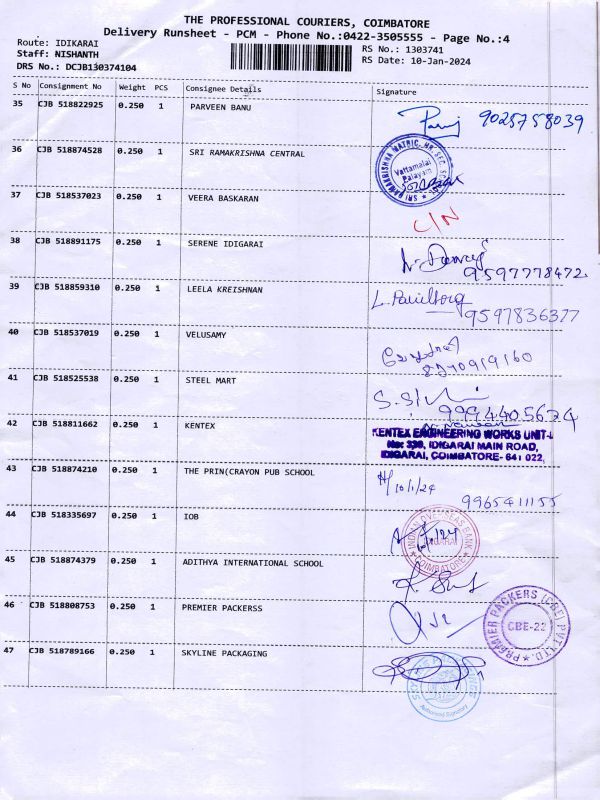 THE PROFESSIONAL COURIERS, COIMBATORE
Delivery Runsheet - PCM - Phone No.:0422-3505555 - Page No.:4
Route: IDIKARAI
Staff: NISHANTH
DRS No.: DCJB130374104
RS No.: 1303741
RS Date: 10-Jan-2024
S No Consignment No Weight PCS Consignee Details Signature
35 CJB 518822925 0.250 1 PARVEEN BANU 9025758039
36 CJB 518874528 0.250 1 SRI RAMAKRISHNA CENTRAL
Vattamalai
Palayam
37 CJB 518537023 0.250 1 VEERA BASKARAN C/N
38 CJB 518891175 0.250 1 SERENE IDIGARAI
9597778472
39 CJB 518859310 0.250 1 LEELA KREISHNAN
9597836377
40 CJB 518537019 0.250 1 VELUSAMY
41 CJB 518525538 0.250 1 STEEL MART
9994405624
42 CJB 518811662 0.250 1 KENTEX
KENTEX ENGINEERING WORKS UNIT-I
IDIGARAI MAIN ROAD,
IDIGARAI, COIMBATORE- 641 022,
43 CJB 518874210 0.250 1 THE PRIN(CRAYON PUB SCHOOL
10/1/24
9965411155
44 CJB 518335697 0.250 1 IOB
INDIAN OVERSEAS BANK
IDIGARAI
COIMBATORE
45 CJB 518874379 0.250 1 ADITHYA INTERNATIONAL SCHOOL
46 CJB 518808753 0.250 1 PREMIER PACKERSS
PREMIER PACKERS (CBE) PVT. LTD.
CBE-22
47 CJB 518789166 0.250 1 SKYLINE PACKAGING
Authorised Signatory